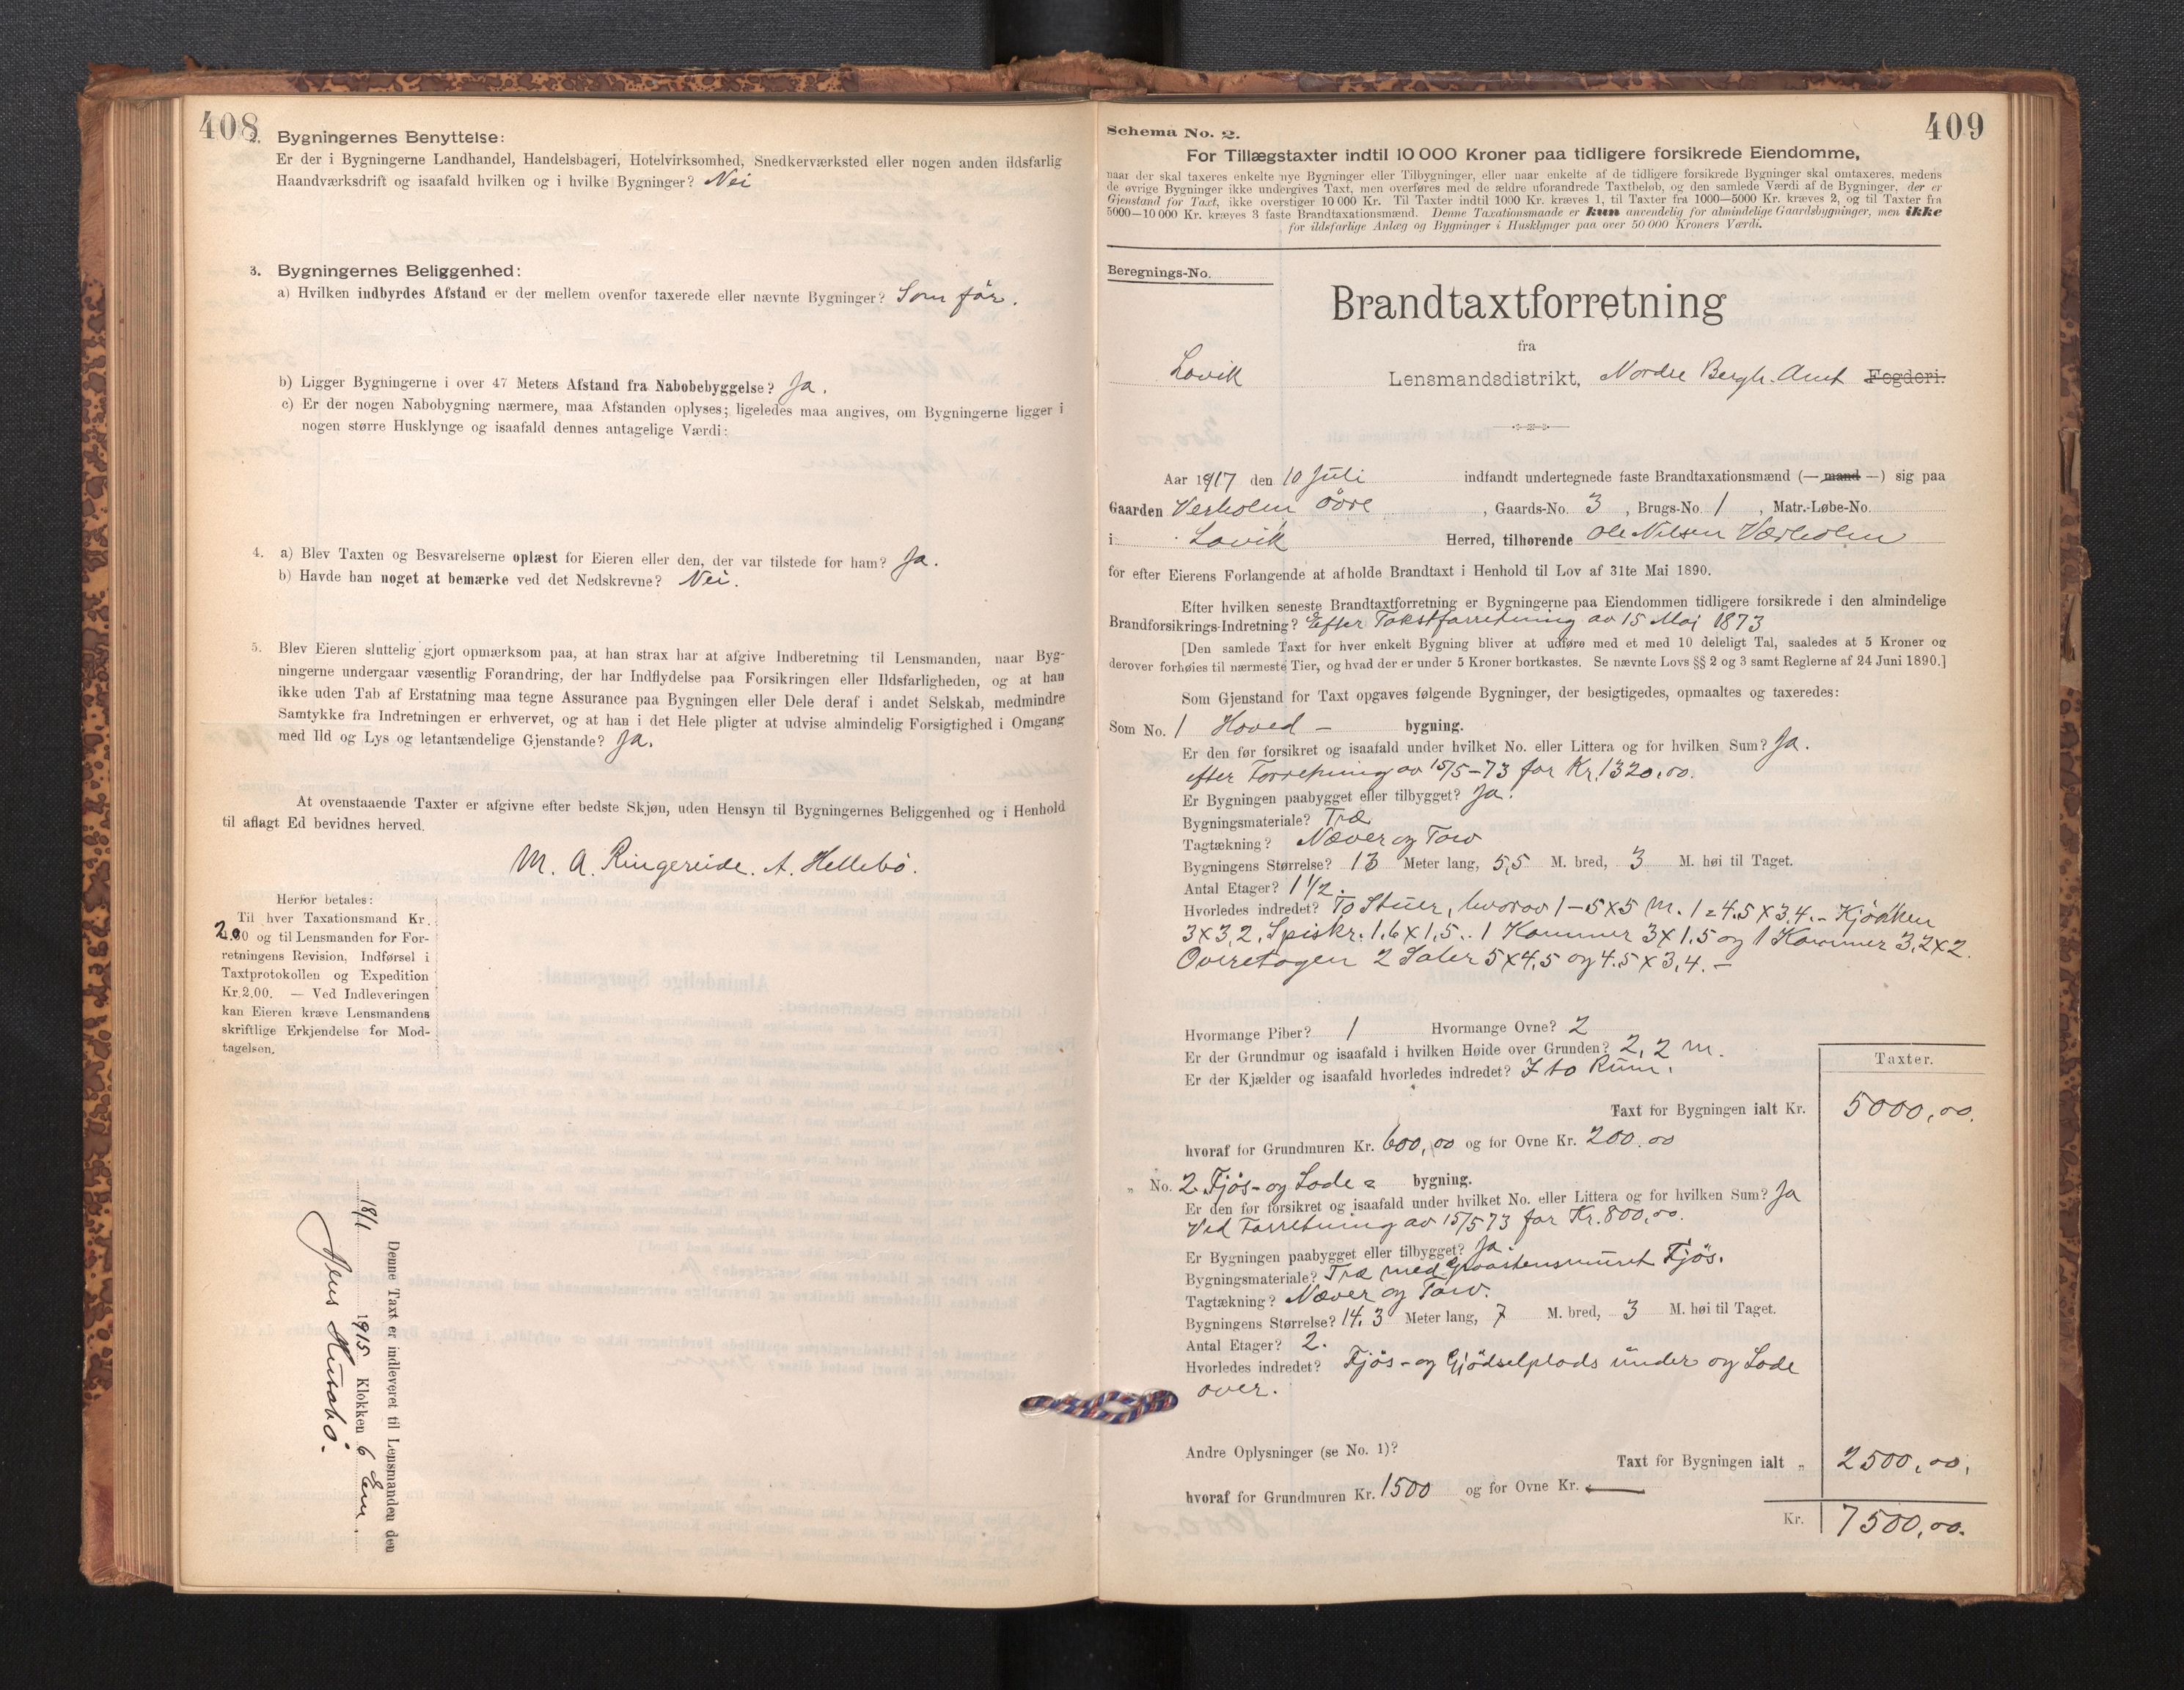 408
2. Bygningernes Benyttelse:
Er der i Bygningerne Landhandel, Handelsbageri, Hotelvirksomhed, Snedkerværksted eller nogen anden ildsfarlig
Haandværksdrift og isaafald hvilken og i hvilke Bygninger? Nei
3. Bygningernes Beliggenhed:
a) Hvilken indbyrdes Afstand er der mellem ovenfor taxerede eller nævnte Bygninger? Som för.
b) Ligger Bygningerne i over 47 Meters Afstand fra Nabobebyggelse? Ja.
c) Er der nogen Nabobygning nærmere, maa Afstanden oplyses; ligeledes maa angives, om Bygningerne ligger i
nogen større Husklynge og isaafald dennes antagelige Værdi:
4. a) Blev Taxten og Besvarelserne oplæst for Eieren eller den, der var tilstede for ham? Ja.
b) Havde han noget at bemærke ved det Nedskrevne? Nei.
5. Blev Eieren sluttelig gjort opmærksom paa, at han strax har at afgive Indberetning til Lensmanden, naar Byg-
ningerne undergaar væsentlig Forandring, der har Indflydelse paa Forsikringen eller Ildsfarligheden, og at han
ikke uden Tab af Erstatning maa tegne Assurance paa Bygningen eller Dele deraf i andet Selskab, medmindre
Samtykke fra Indretningen er erhvervet, og at han i det Hele pligter at udvise almindelig Forsigtighed i Omgang
med Ild og Lys og letantændelige Gjenstande? Ja.
At ovenstaaende Taxter er afgivne efter bedste Skjøn, uden Hensyn til Bygningernes Beliggenhed og i Henhold
til aflagt Ed bevidnes herved.
M. A. Ringereide. A. Hellebö.
Herfor betales:
Til hver Taxationsmand Kr.
2.00 og til Lensmanden for For-
retningens Revision, Indførsel i
Taxtprotokollen og Expedition
Kr. 2.00. — Ved Indleveringen
kan Eieren kræve Lensmandens
skriftlige Erkjendelse for Mod-
tagelsen.
Denne Taxt er indleveret til Lensmanden den
18/1 1915 Klokken 6 Em.
Jens Husabö.
409
Schema No. 2.
For Tillægstaxter indtil 10 000 Kroner paa tidligere forsikrede Eiendomme,
naar der skal taxeres enkelte nye Bygninger eller Tilbygninger, eller naar enkelte af de tidligere forsikrede Bygninger skal omtaxeres, medens
de øvrige Bygninger ikke undergives Taxt, men overføres med de ældre uforandrede Taxtbeløb, og den samlede Værdi af de Bygninger, der er
Gjenstand for Taxt, ikke overstiger 10 000 Kr. Til Taxter indtil 1000 Kr. kræves 1, til Taxter fra 1000—5000 Kr. kræves 2, og til Taxter fra
5000—10 000 Kr. kræves 3 faste Brandtaxationsmænd. Denne Taxationsmaade er kun anvendelig for almindelige Gaardsbygninger, men ikke
for ildsfarlige Anlæg og Bygninger i Husklynger paa over 50 000 Kroners Værdi.
Beregnings-No.
Brandtaxtforretning
fra
Lavik Lensmandsdistrikt, Nordre Bergh. Amt Fogderi.
Aar 1917 den 10 Juli indfandt undertegnede faste Brandtaxationsmænd (— mand —) sig paa
Gaarden Verholm övre, Gaards-No. 3, Brugs-No. 1, Matr.-Løbe-No.
i Lavik Herred, tilhørende Ole Nilsen Værholm
for efter Eierens Forlangende at afholde Brandtaxt i Henhold til Lov af 31te Mai 1890.
Efter hvilken seneste Brandtaxtforretning er Bygningerne paa Eiendommen tidligere forsikrede i den almindelige
Brandforsikrings-Indretning? Efter Takstforretning av 15 Mai 1873
[Den samlede Taxt for hver enkelt Bygning bliver at udføre med et med 10 deleligt Tal, saaledes at 5 Kroner og
derover forhøies til nærmeste Tier, og hvad der er under 5 Kroner bortkastes. Se nævnte Lovs §§ 2 og 3 samt Reglerne af 24 Juni 1890.]
Som Gjenstand for Taxt opgaves følgende Bygninger, der besigtigedes, opmaaltes og taxeredes:
Som No. 1 Hoved - bygning.
Er den før forsikret og isaafald under hvilket No. eller Littera og for hvilken Sum? Ja.
efter Forretning av 15/5-73 for Kr. 1320.00.
Er Bygningen paabygget eller tilbygget? Ja.
Bygningsmateriale? Træ
Tagtækning? Næver og Torv
Bygningens Størrelse? 13 Meter lang, 5,5 M. bred, 3 M. høi til Taget.
Antal Etager? 1 1/2.
Hvorledes indredet? To Stuer, hvorav 1 - 5 X 5 M. 1 = 4.5 X 3.4. - Kjökken
3 X 3,2. Spiskr. 1.6 X 1,5.. 1 Kammer 3 X 1.5 og 1 Kammer 3,2 X 2.
Overetagen 2 Saler 5 X 4,5 og 4.5 X 3,4. -
Hvormange Piber? 1 Hvormange Ovne? 2
Er der Grundmur og isaafald i hvilken Høide over Grunden? 2,2 m.
Er der Kjælder og isaafald hvorledes indredet? I to Rum.
Taxter.
Taxt for Bygningen ialt Kr. 5000,00.
hvoraf for Grundmuren Kr. 600,00 og for Ovne Kr. 200.00
„ No. 2 Fjös- og Lade = bygning.
Er den før forsikret og isaafald under hvilket No. eller Littera og for hvilken Sum? Ja
Ved Forretning av 15/5 73 for Kr. 800,00.
Er Bygningen paabygget eller tilbygget? Ja.
Bygningsmateriale? Træ med graastensmuret Fjös.
Tagtækning? Næver og Torv.
Bygningens Størrelse? 14.3 Meter lang, 7 M. bred, 3 M. høi til Taget.
Antal Etager? 2.
Hvorledes indredet? Fjös- og Gjödselplads under og Lade
over.
Andre Oplysninger (se No. 1)?
Taxt for Bygningen ialt „ 2500,00.
hvoraf for Grundmuren Kr. 1500 og for Ovne Kr. —
Kr. 7500,00.